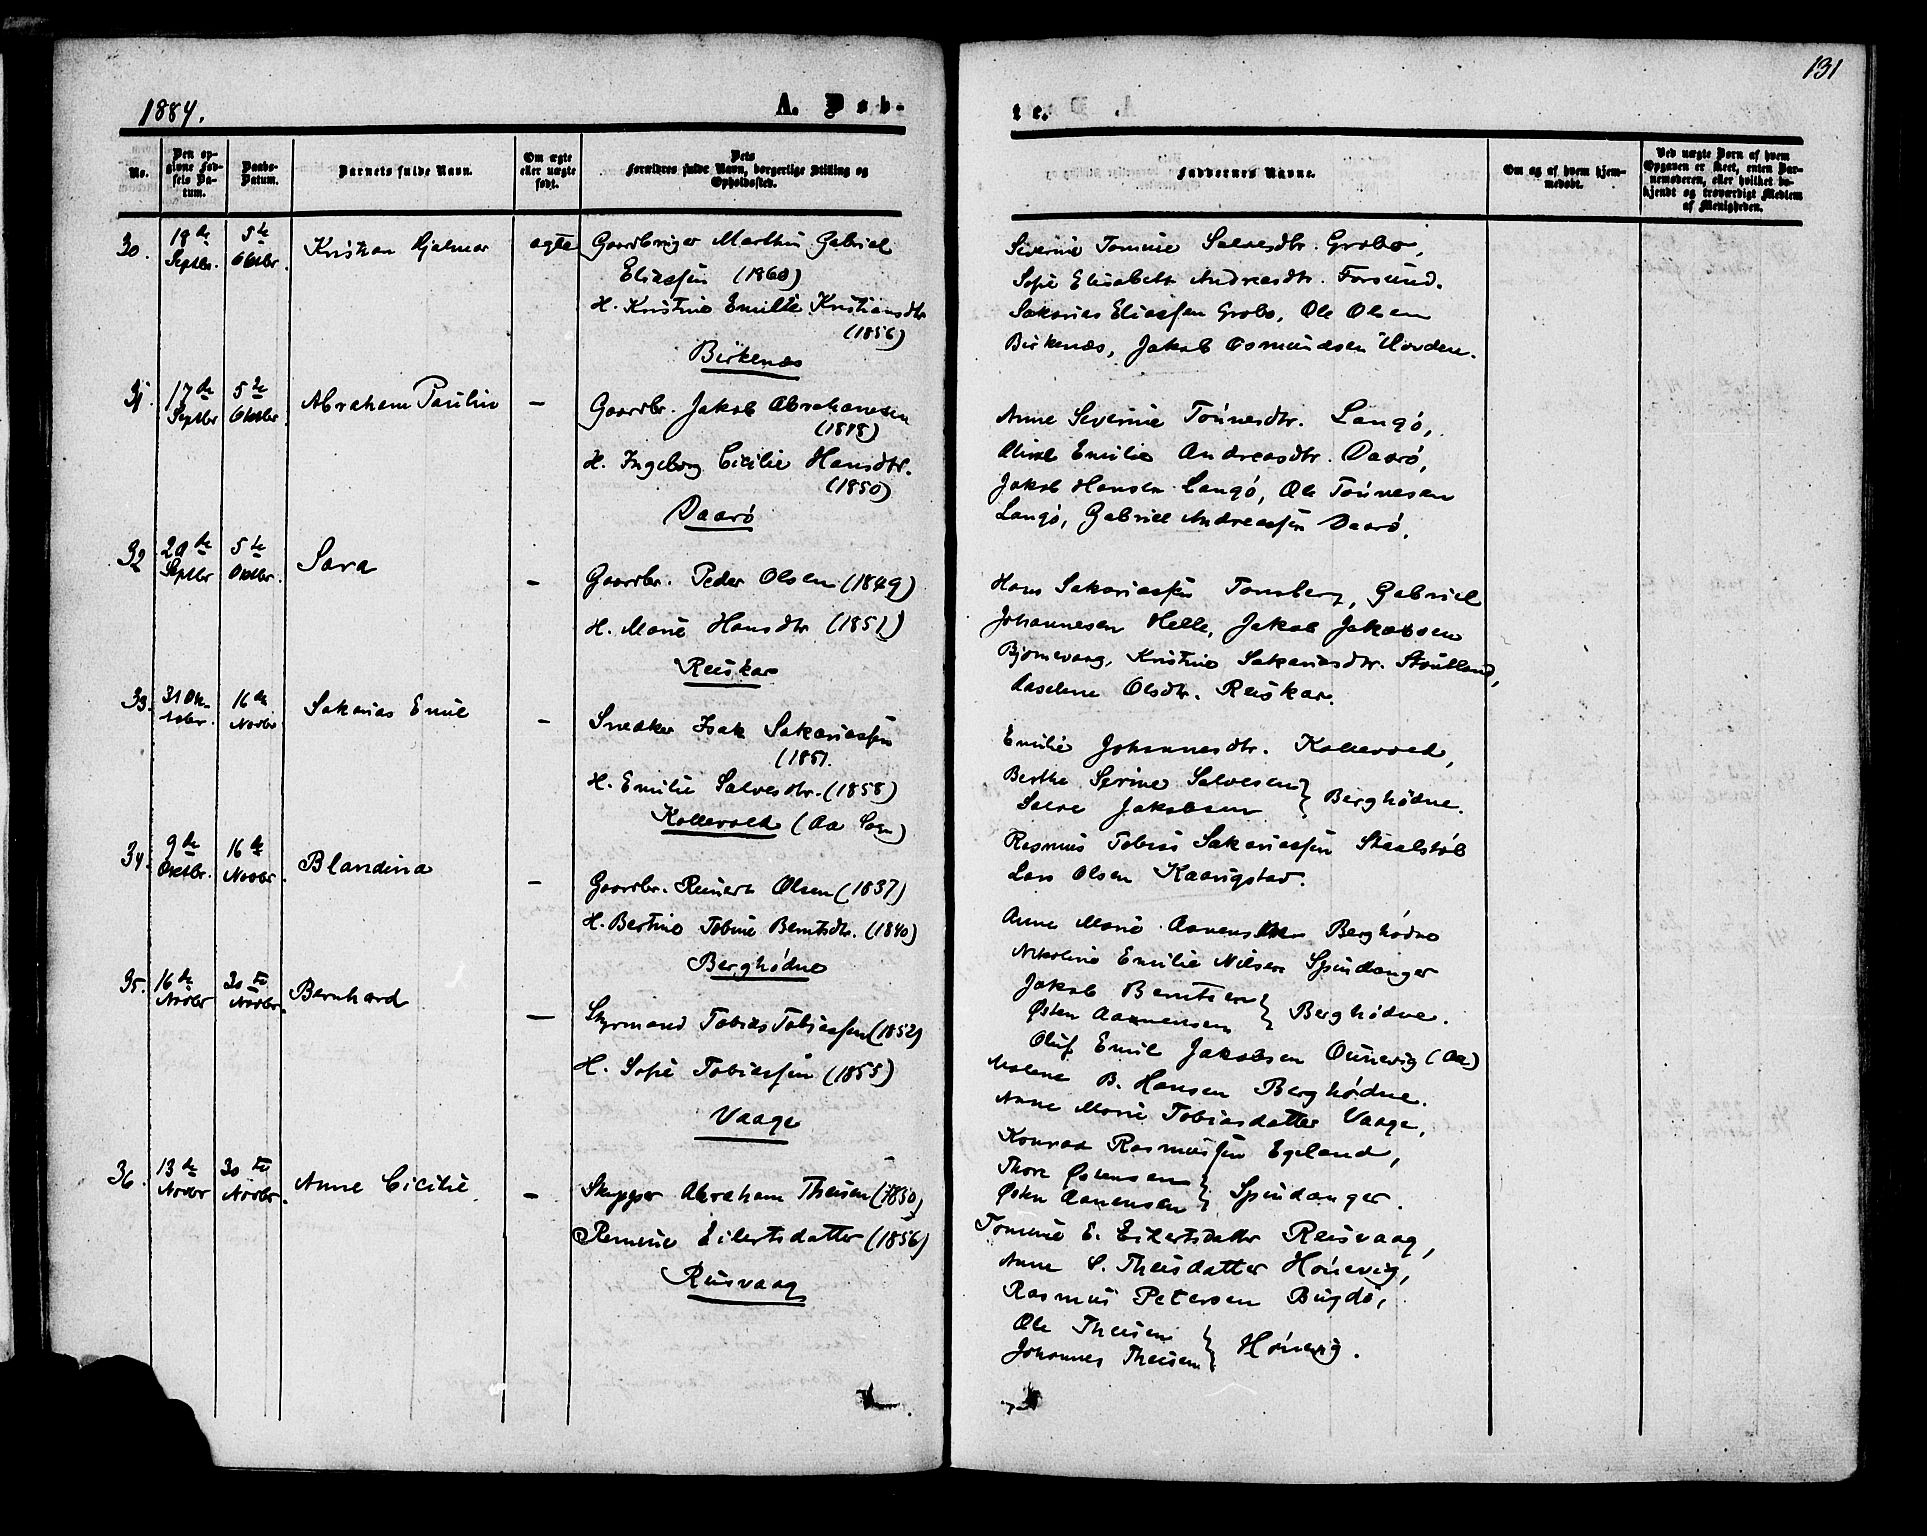 131
1884.
A. Døb-
te.
No.
Den op-
givne Fød-
sels Da-
tum.
Daabs-
Datum.
Barnets fulde Navn.
Om ægte
eller uægte
født.
Dets
Forældres fulde Navn, borgerlige Stilling og
Opholdssted.
Faddernes Navne.
Om og af hvem hjem-
medøbt.
Ved uægte Børn af hvem
Opgaven er skeet, enten Bar-
nemoderen, eller hvilket be-
kjendt og troværdigt Medlem
af Menigheden.
30.
18de
Septbr.
5te
Oktbr.
Kristian Hjalmar
ægte
Gaardbruger Marthin Gabriel
Eliassen (1860)
H. Kristine Emilie Kristiansdtr
(1856)
Birkenæs
Severine Tomine Salvesdtr. Grobo,
Sofie Elisabeth Andreasdtr. Farsund.
Sakarias Eliassen Grobo, Ole Olsen
Birkenæs, Jakob Osmundsen Hovden.
31.
17de
Septbr
5te
Oktbr.
Abraham Paulin
—
Gaardbr. Jakob Abrahamsen
(1818)
H. Ingeborg Cicilie Hansdtr.
(1850)
Daarø
Anne Severine Tønnesdtr. Langø,
Emilie Andreasdtr. Daarø,
Jakob Hansen Langø, Ole Tønnesen
Langø, Gabriel Andreassen Daarø.
32
29de
Septbr
5te
Oktbr.
Sara
—
Gaardbr. Peder Olsen (1849)
H. Marie Hansdtr (1851)
Reiskar
Hans Sakariassen Tonsberg, Gabriel
Johannesen Helle, Jakob Jakobsen
Bjørnevaag, Kristine Sakariasdtr. Stoutland,
Aaselene Olsdtr. Reiskar.
33.
31 Ok-
tober.
16de
Novbr
Sakarias Emil
—
Snedker Isak Sakariassen
(1851.
H. Emilie Salvesdtr. (1858)
Kollevold (Aa Sogn)
Emilie Johannesdtr. Kollevold,
Berthe Serine Salvesen
Salve Jakobsen } Berghødne.
Rasmus Tobias Sakariassen Staalstøl
Lars Olsen Kaarigstad.
34.
9de
Oktbr.
16de
Novbr.
Blandina
—
Gaardbr. Reinert Olsen (1837)
H. Bertine Tobine Berntsdtr. (1840)
Berghødne
Anne Marie Aanensen Berghødne
Nikoline Emilie Nilsen Spindanger
Jakob Berntsen
Østen Aanensen } Berghødne.
Oluf Emil Jakobsen Ounevig (Aa)
35.
16de
Novbr
30te
Novbr.
Bernhard
—
Styrmand Tobias Tobiassen (1852)
H. Sofie Tobiassen (1855)
Vaage
Malene B. Hansen Berghødne.
Anne Marie Tobiasdatter Vaage,
Konrad Rasmussen Egeland,
Thore Østensen
Østen Aanensen } Spindanger.
36.
13de
Novbr
30te
Novbr.
Anne Cicilie
—
Skipper Abraham Theisen (1850)
Remine Eilertsdatter (1856)
Reisvaag
Tomine E. Eilertsdatter Reisvaag,
Anne S. Theisdatter Hønevig,
Rasmus Petersen Bugdø,
Ole Theisen
Johannes Theisen } Hønevig.